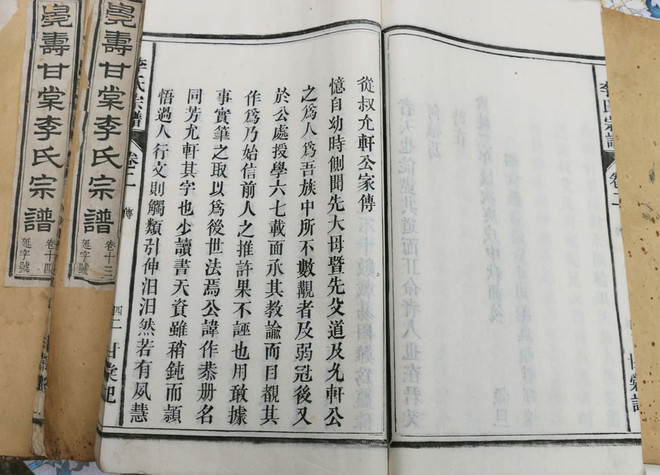 李氏宗譜 卷二
從叔允軒公家傳
憶自幼時側聞先大母暨先父道及允軒公
之爲人爲吾族中所不數觀者及弱冠後又
於公處授學六七載面承其教諭而目覩其
作爲乃始信前人之推許果不誣也用敢據
事實筆之取以爲後世法焉公諱作恭册名
同芳允軒其字也少讀書天資雖稍鈍而頴
悟過人行文則觸類引伸汩汩然若有夙慧
李氏宗譜 卷二 傳 四二 甘棠記
壽甘棠李氏宗譜
卷十三
延字號
壽甘棠李氏宗譜
卷十四
延字號